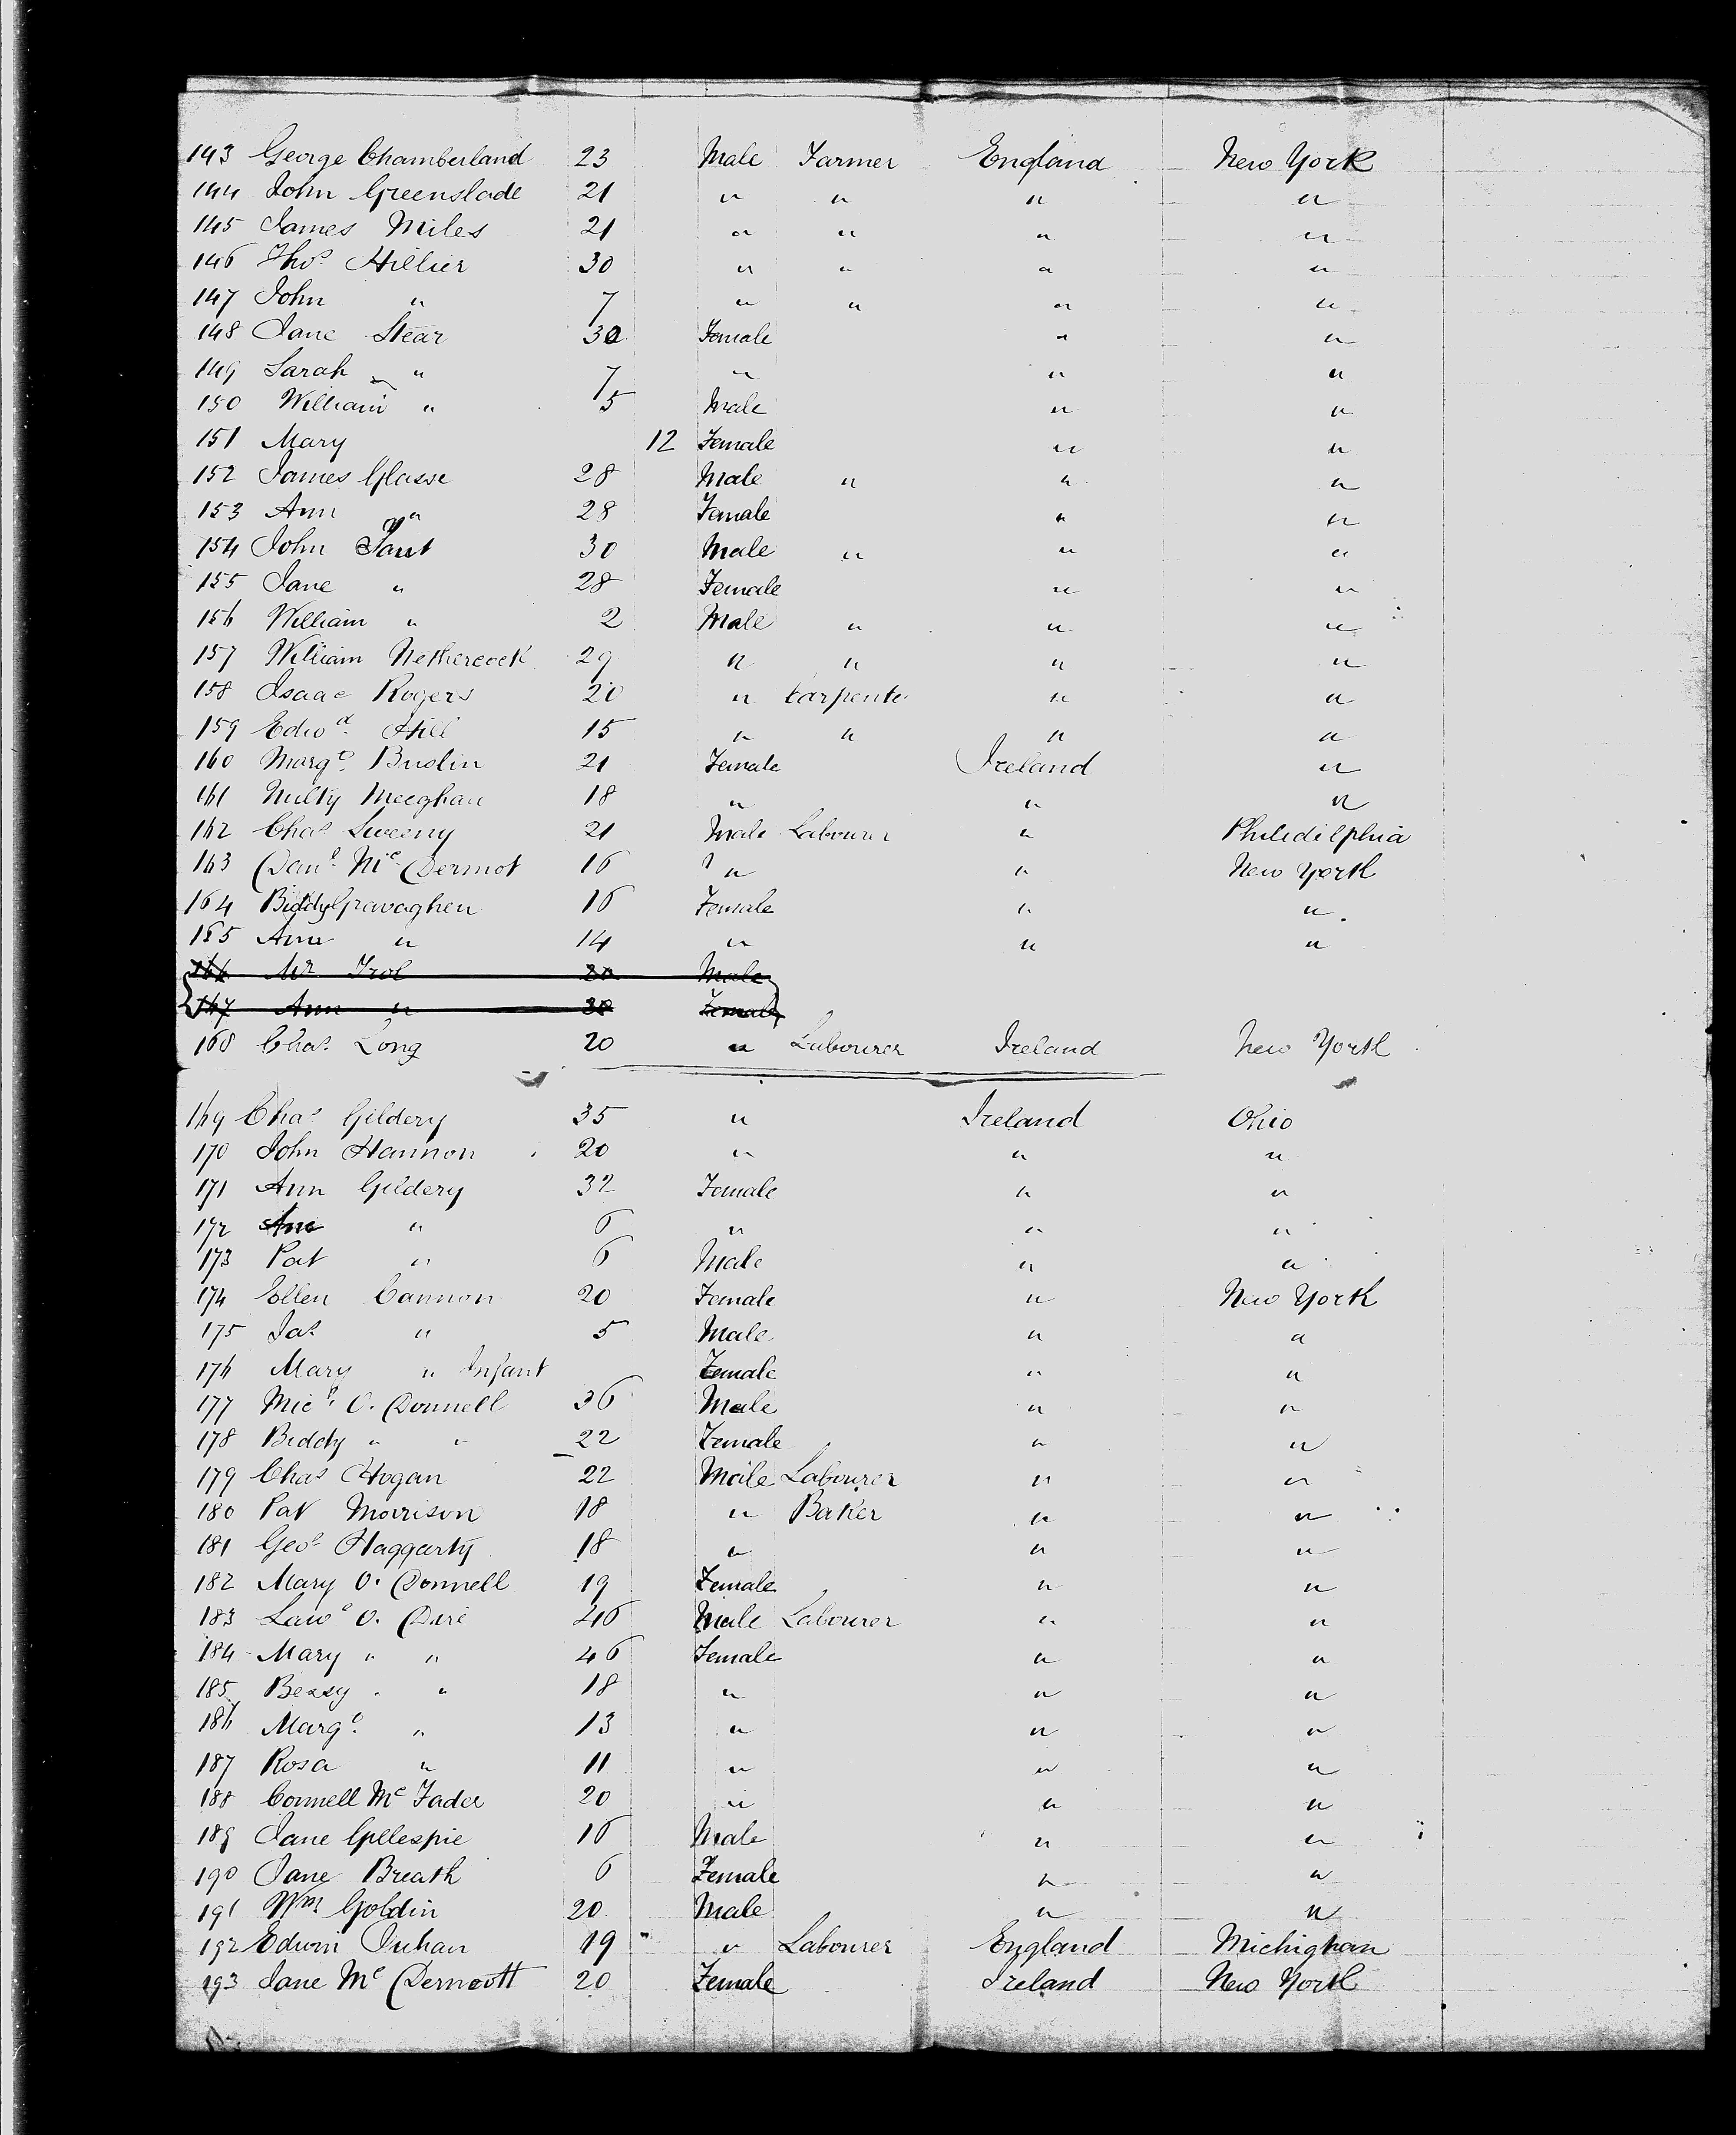 143 George Chamberland 23 Male Farmer England New York
144 John Greenslade 21 " " " "
145 James Miles 21 " " " "
146 Thos Hillier 30 " " " "
147 John " 7 " " " "
148 Jane Stear 30 Female " "
149 Sarah " 7 " " "
150 William " 5 Male " "
151 Mary 12 Female " "
152 James Glasse 28 Male " " "
153 Ann " 28 Female " "
154 John 30 Male " " "
155 Jane " 28 Female " "
156 William " 2 Male " " "
157 William Nethercock 29 " " " "
158 Isaac Rogers 20 " Carpenter " "
159 Edwd Hill 15 " " " "
160 Margt Buslin 21 Female Ireland "
161 Nulty Meeghan 18 " " "
162 Chas Sweeny 21 Male Labourer " Philedilphia
163 Danl McDermot 16 " " New York
164 Biddy Gravaghen 16 Female " "
165 Ann " 14 " " "
166 Mr Trol 20 Male
167 Ann " 30 Female
168 Chas Long 20 " Labourer Ireland New York
169 Chas Gildery 35 " Ireland Ohio
170 John Hannon 20 " " "
171 Ann Gildery 32 Female " "
172 Ann " 6 " " "
173 Pat " 6 Male " "
174 Ellen Cannon 20 Female " New York
175 Jas " 5 Male " "
176 Mary " Infant Female " "
177 Micl O. Donnell 36 Male " "
178 Biddy " " 22 Female " "
179 Chas Hogan 22 Male Labourer " "
180 Pat Morrison 18 " Baker " "
181 Geoe Haggarty 18 " " "
182 Mary O. Donnell 19 Female " "
183 Lawe O. Dire 46 Male Labourer " "
184 Mary " " 46 Female " "
185 Bessy " " 18 " " "
186 Margt " 13 " " "
187 Rosa " 11 " " "
188 Connell McFader 20 " " "
189 Jane Gillespie 16 Male " "
190 Jane Breath 6 Female " "
191 Wm Goldin 20 Male " "
192 Edwin Juhan 19 " Labourer England Michighan
193 Jane McDermott 20 Female Ireland New York